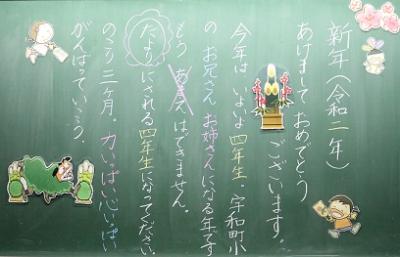 新年(令和二年)
あけまして おめでとう
ございます。
今年は いよいよ四年生。宇和町小
の お兄さん お姉さんになる年です
もう あまえ はできません。
たよりにされる四年生になってください。
のこり三ヶ月。力いっぱい心いっぱい
がんばっていこう。